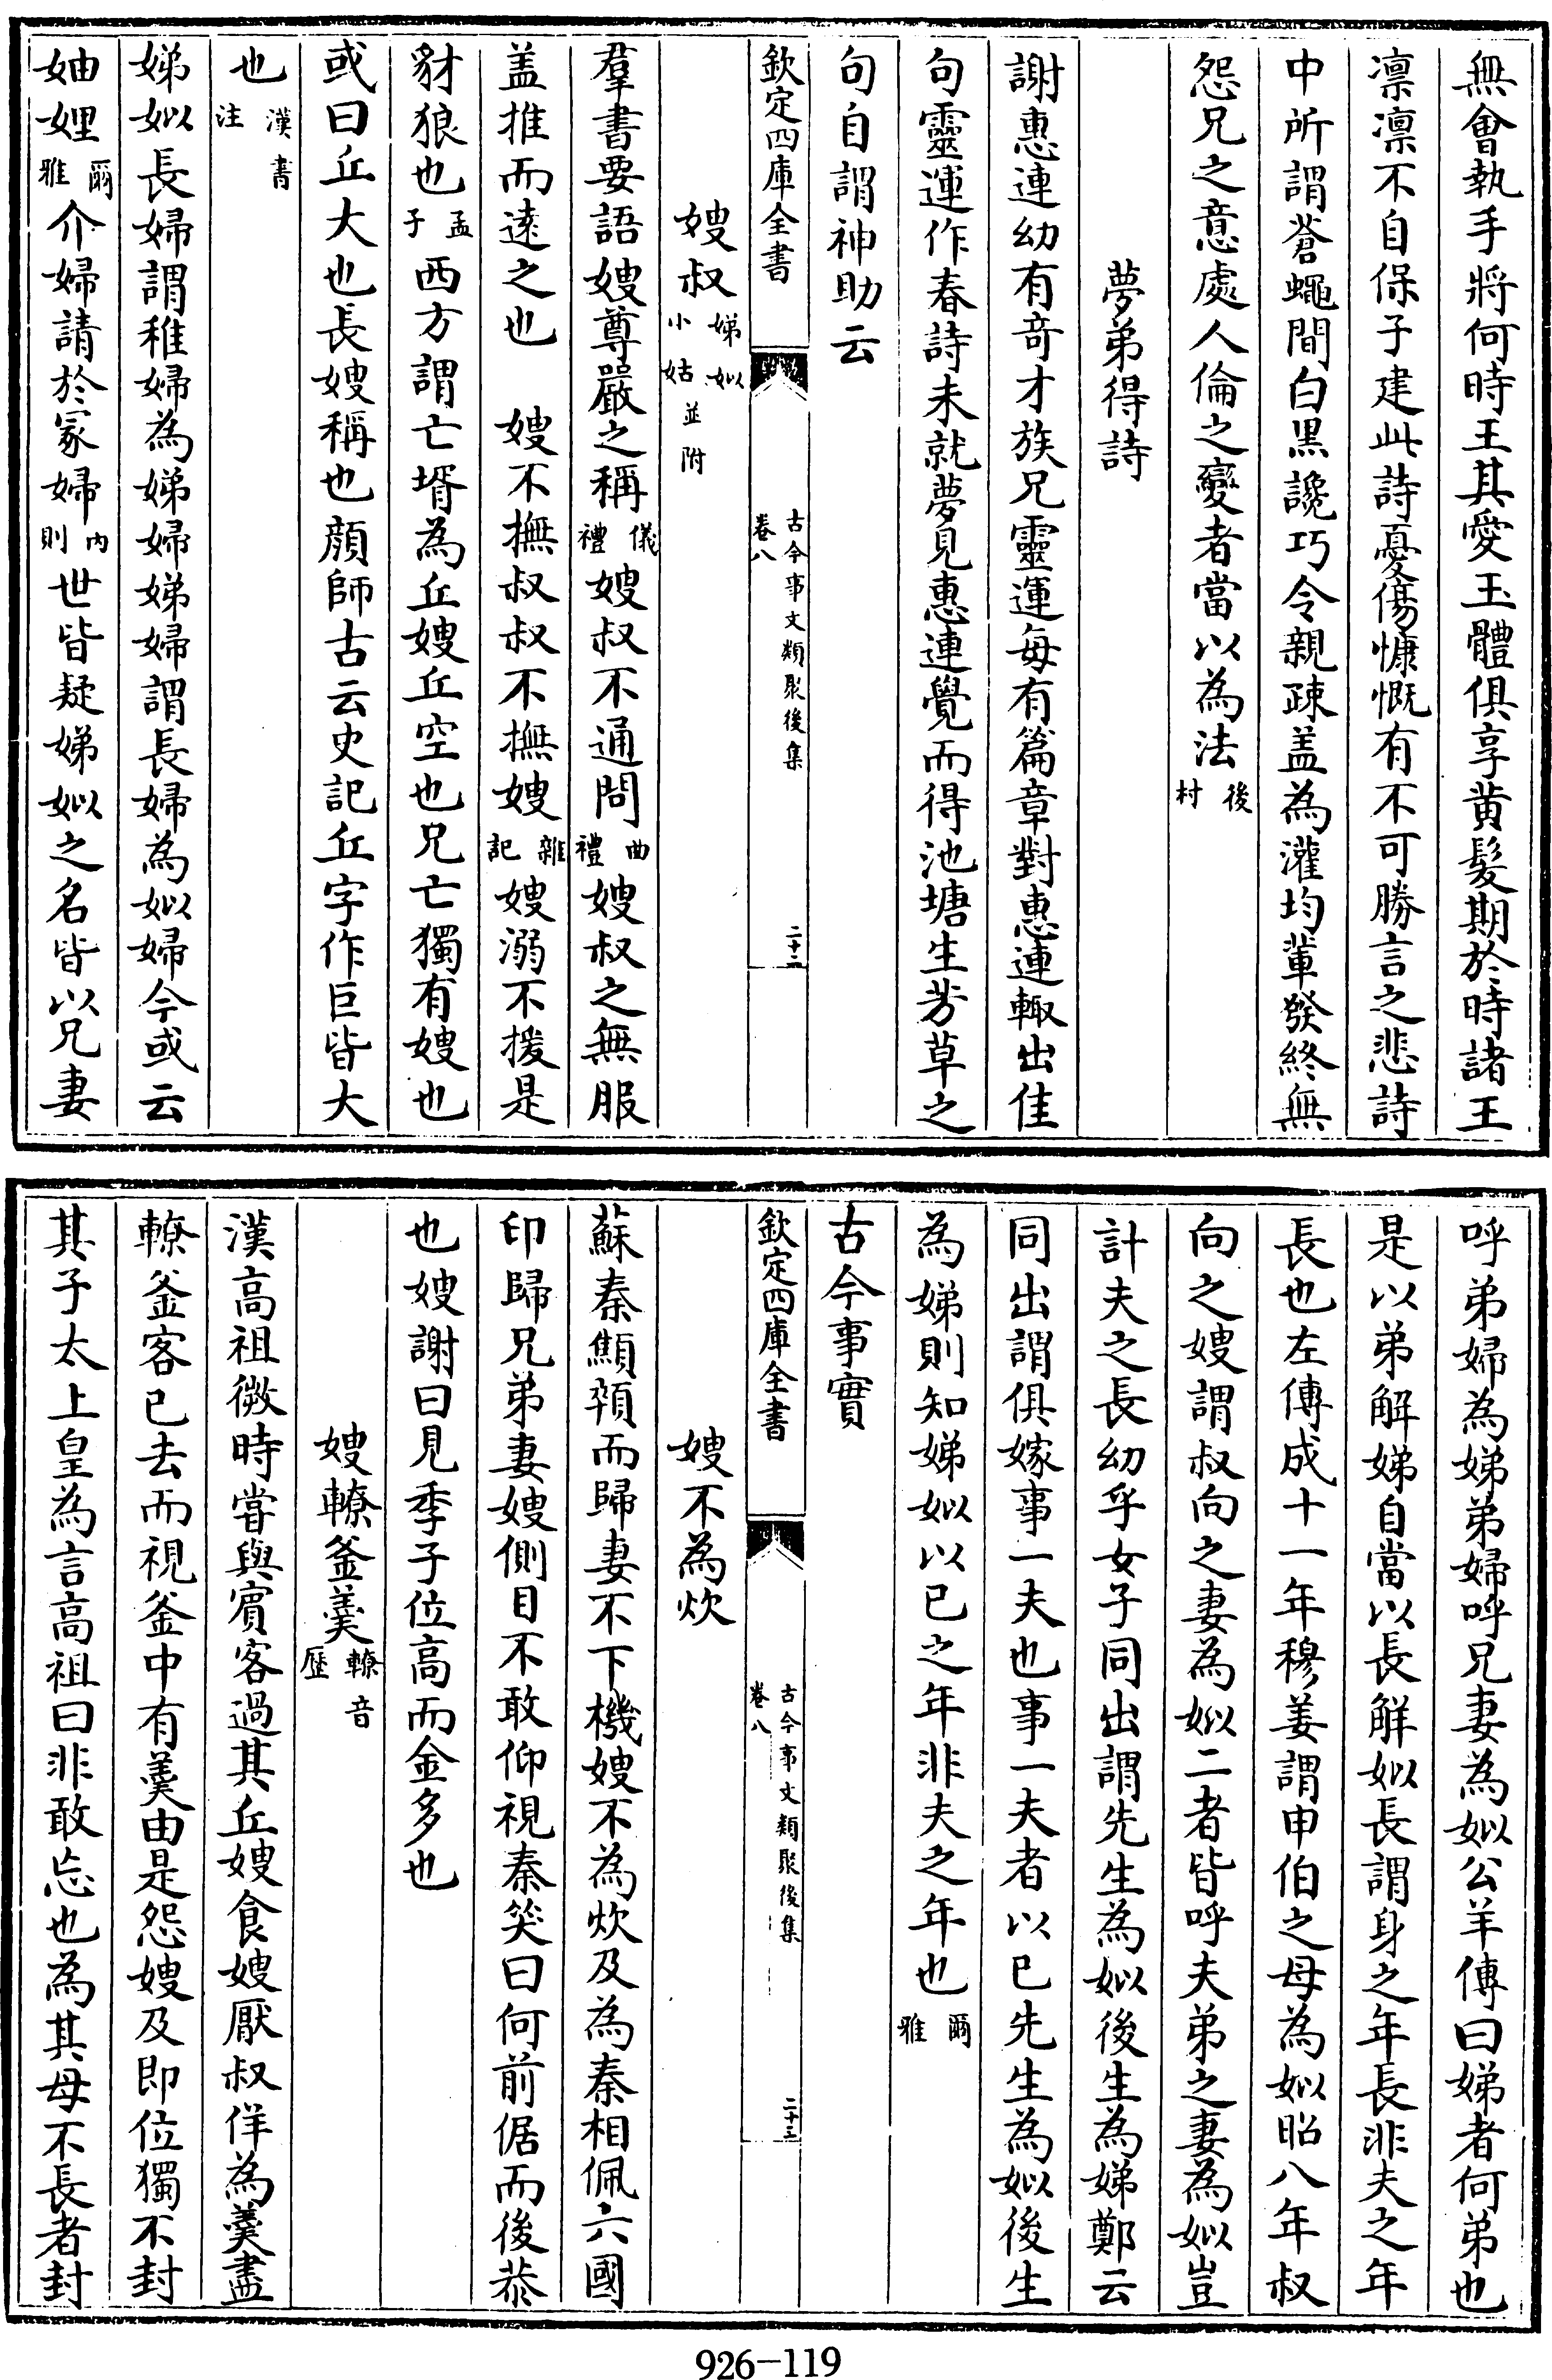 無會執手將何時王其愛玉體俱享黄髮期於時諸王
凛凛不自保子建此詩憂傷慷慨有不可勝言之悲詩
中所謂蒼蠅間白黒讒巧令親疎盖為灌均輩發終無
怨兄之意處人倫之變者當以為法後村
夢弟得詩
謝惠連幼有竒才族兄靈運每有篇章對惠連輙出佳
句靈運作春詩未就夢見惠連覺而得池塘生芳草之
句自謂神助云
欽定四庫全書 古今事文類聚後集 卷八 二十二
嫂叔娣姒小姑並附
羣書要語嫂尊嚴之稱儀禮嫂叔不通問曲禮嫂叔之無服
盖推而逺之也 嫂不撫叔叔不撫嫂雜記嫂溺不援是
豺狼也孟子西方謂亡壻為丘嫂丘空也兄亡獨有嫂也
或曰丘大也長嫂稱也顔師古云史記丘字作巨皆大
也漢書注
娣姒長婦謂稚婦為娣婦娣婦謂長婦為姒婦今或云
妯娌爾雅介婦請於冢婦内則世皆疑娣姒之名皆以兄妻
呼弟婦為娣弟婦呼兄妻為姒公羊傳曰娣者何弟也
是以弟解娣自當以長解姒長謂身之年長非夫之年
長也左傳成十一年穆姜謂申伯之母為姒昭八年叔
向之嫂謂叔向之妻為姒二者皆呼夫弟之妻為姒豈
計夫之長幼乎女子同出謂先生為姒後生為娣鄭云
同出謂俱嫁事一夫也事一夫者以已先生為姒後生
為娣則知娣姒以已之年非夫之年也爾雅
古今事實
欽定四庫全書 古今事文類聚後集 卷八 二十三
嫂不為炊
蘇秦顦顇而歸妻不下機嫂不為炊及為秦相佩六國
印歸兄弟妻嫂側目不敢仰視秦笑曰何前倨而後恭
也嫂謝曰見季子位高而金多也
嫂轑釜羮轑音歷
漢高祖微時甞與賓客過其丘嫂食嫂厭叔佯為羮盡
轑釜客已去而視釜中有羮由是怨嫂及即位獨不封
其子太上皇為言高祖曰非敢忘也為其母不長者封
926-119